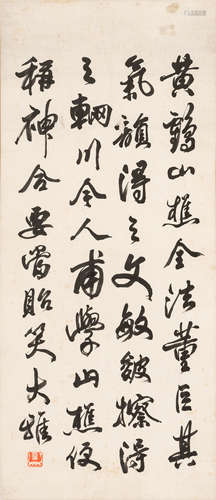 黄鶴山樵全法董巨其
氣韻得之文敏皴擦得
之輞川今人甫學山樵便
稱神合要當貽笑大雅